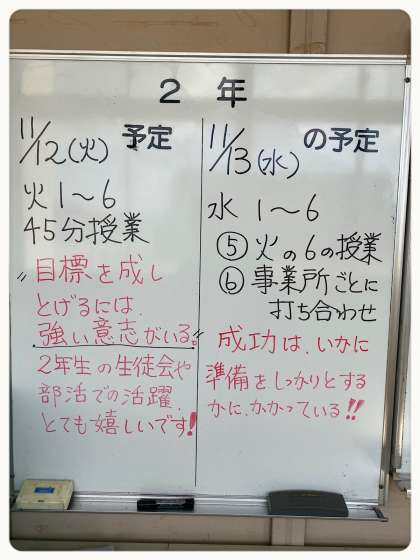 2 年
11/12(火) 予定
火 1～6
45分授業
"目標を成し
とげるには、
強い意志がいる。"
2年生の生徒会や
部活での活躍、
とても嬉しいです!
11/13(水) の予定
水 1～6
⑤ 火の6の授業
⑥ 事業所ごとに
打ち合わせ
成功は、いかに
準備をしっかりとする
かに、かかっている!!